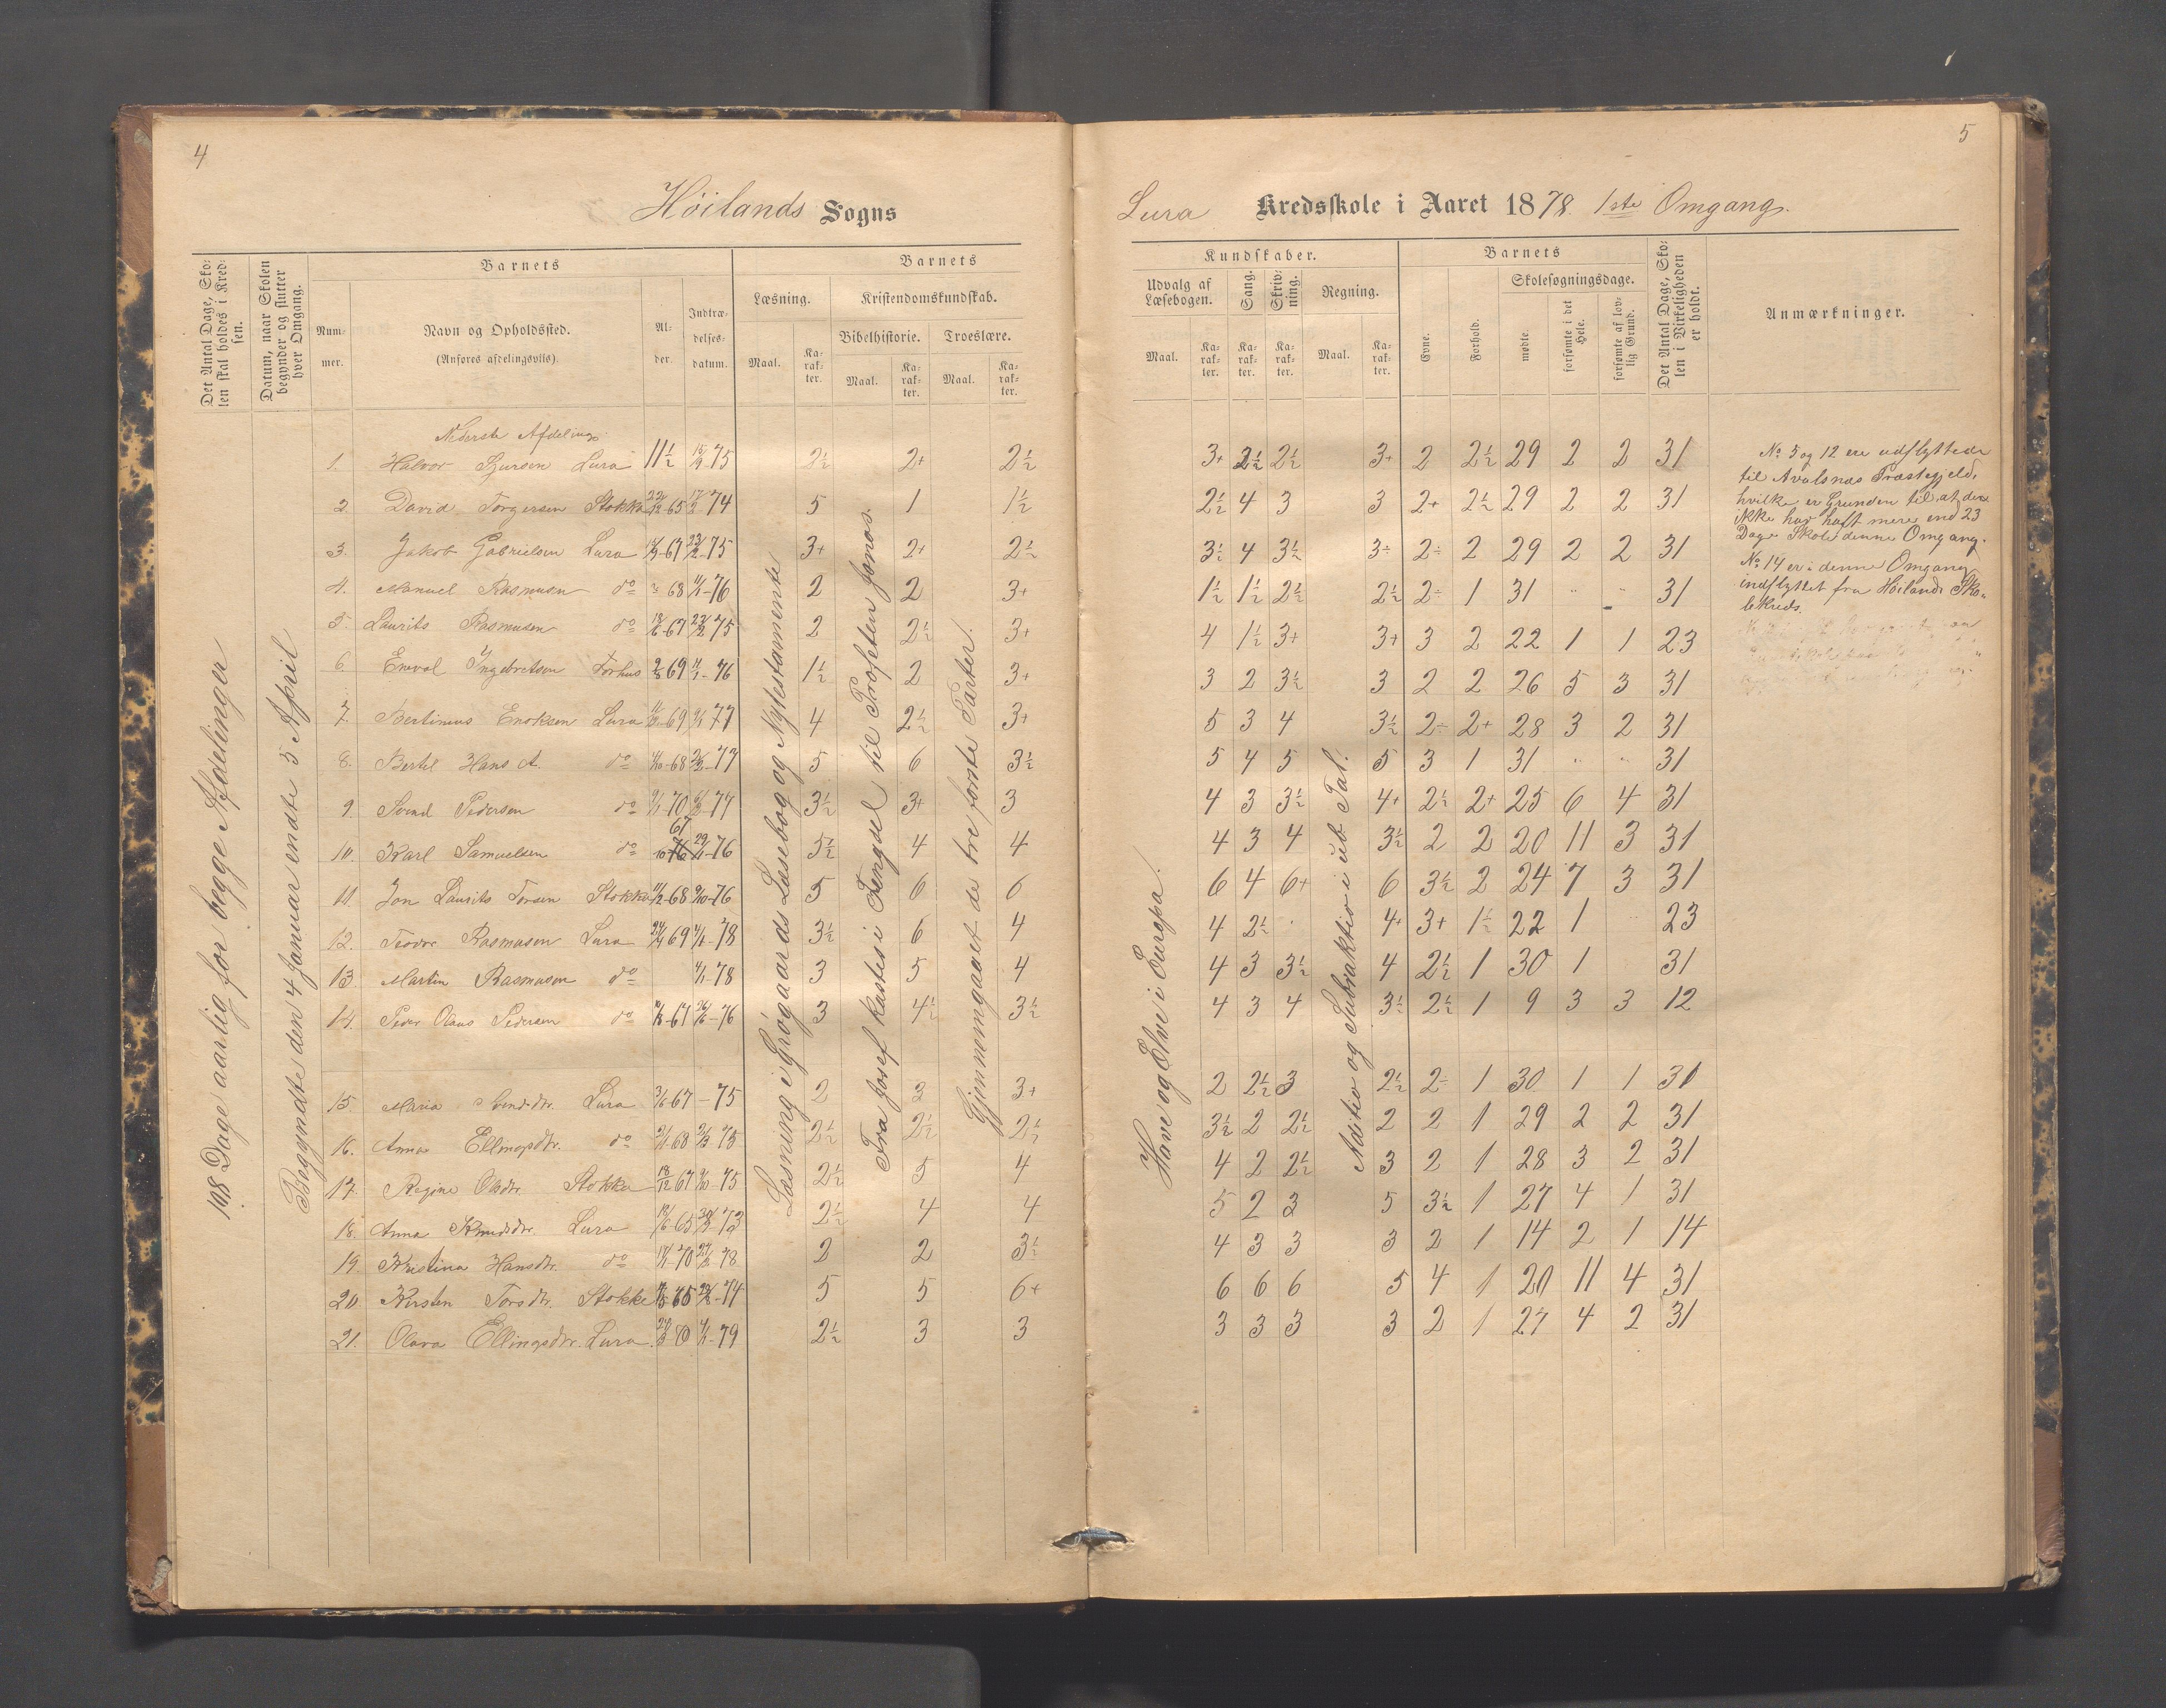 4
Höilands Sogns
Det Antal Dage, Skolen skal holdes i Kredsen.
Datum, naar Skolen begynder og slutter hver Omgang.
Barnets
Barnets
Nummer.
Navn og Opholdssted.
(Anføres afdelingsvis).
Alder.
Indtrædelsesdatum.
Læsning.
Kristendomskundskab.
Bibelhistorie. Troeslære.
Maal. Karakter. Maal. Karakter. Maal. Karakter.
108 Dage aarlig for begge Afdelinger
Begyndte den 4 Januar endte 5 April
Læsning i Grøgaards Læsebog og Nytestamente
Fra Josef kastes i Fengsel til Profeten Jonas.
Gjennemgaaet de tre første Parter.
Nederste Afdeling
1. Halvor Sjursen Lura 11½ 15/9 75 2½ 2+ 2½
2. David Torgersen Stokka 22/12 65 17/2 74 5 1 1½
3. Jakob Gabrielsen Lura 67 23/2 75 3+ 2+ 2½
4. Manuel Rasmusen do 68 4/1-76 2 2 3+
5. Laurits Rasmusen do 18/6-67 23/2 75 2 2½ 3+
6. Enoval Ingebretsen Forhus 69 4/1-76 1½ 2 3+
7. Bertinius Enoksen Lura 69 77 4 2½ 3+
8. Bertel Hans A. do 4/10-68 77 5 6 3½
9. Svend Pedersen do 70 77 3½ 3+ 3
10. Karl Samuelsen do 67 29/11-76 5½ 4 4
11. Jon Laurits Torsen Stokka 68 9/10-76 5 6 6
12. Teodor Rasmusen Lura 69 4/1-78 3½ 6 4
13. Martin Rasmusen do 4/1-78 3 5 4
14. Peder Olaus Pedersen do 67 76 3 4½ 3½
15. Maria Svendsdtr. Lura 67 - 75 2 3 3+
16. Anna Ellingsdtr. do 68 75 2½ 2½ 2½
17. Regine Olsdtr. Stokka 18/12 67 75 2½ 5 4
18. Anna Knudsdtr. Lura 65 73 2½ 4 4
19. Kristina Hansdtr. do 70 78 2 2 3½
20 Kirsten Torsdtr. Stokke 65 74 5 5 6+
21. Olava Ellingsdtr. Lura. 70 79 2½ 3 3
5
Lura Kredsskole i Aaret 1878. 1ste Omgang.
Kundskaber.
Barnets
Udvalg af Læsebogen.
Sang.
Skrivning.
Regning.
Skolesøgningsdage.
Maal. Karakter. Karakter. Karakter. Maal. Karakter.
Evne. Forhold. mødte. forsømte i det Hele. forsømte af lovlig Grund.
Det Antal Dage, Skolen i Virkeligheden er holdt.
Anmærkninger.
Have og Elve i Europa.
Aditio og Subtraktio i ub. Tal.
3+ 2½ 2½ 3+ 2 2½ 29 2 2 31
2½ 4 3 3 2+ 2½ 29 2 2 31
3½ 4 3½ 3÷ 2÷ 2 29 2 2 31
1½ 1½ 2½ 2½ 2÷ 1 31 " " 31
4 1½ 3+ 3+ 3 2 22 1 1 23
3 2 3½ 3 2 2 26 5 3 31
5 3 4 3½ 2÷ 2+ 28 3 2 31
5 4 5 5 3 1 31 " " 31
4 3 3½ 4+ 2½ 2+ 25 6 4 31
4 3 4 3½ 2 2 20 11 3 31
6 4 6+ 6 3½ 2 24 7 3 31
4 2½ 4+ 3+ 1½ 22 1 23
4 3 3½ 4 2½ 1 30 1 31
4 3 4 3½ 2½ 1 9 3 3 12
2 2½ 3 2½ 2÷ 1 30 1 1 31
3½ 2 2½ 2 2 1 29 2 2 31
4 2 2½ 3 2 1 28 3 2 31
5 2 3 5 3½ 1 27 4 1 31
4 3 3 3 2 1 14 2 1 14
6 6 6 5 4 1 20 11 4 31
3 3 3 3 2 1 27 4 2 31
No 5 og 12 ere udflyttede
til Avalsnæs Præstegjeld,
hvilke er Grunden til, at de
ikke har haft mere end 23
Dage Skole denne Omgang.
No 14 er i denne Omgang
indflyttet fra Höilands Sko-
lekreds.